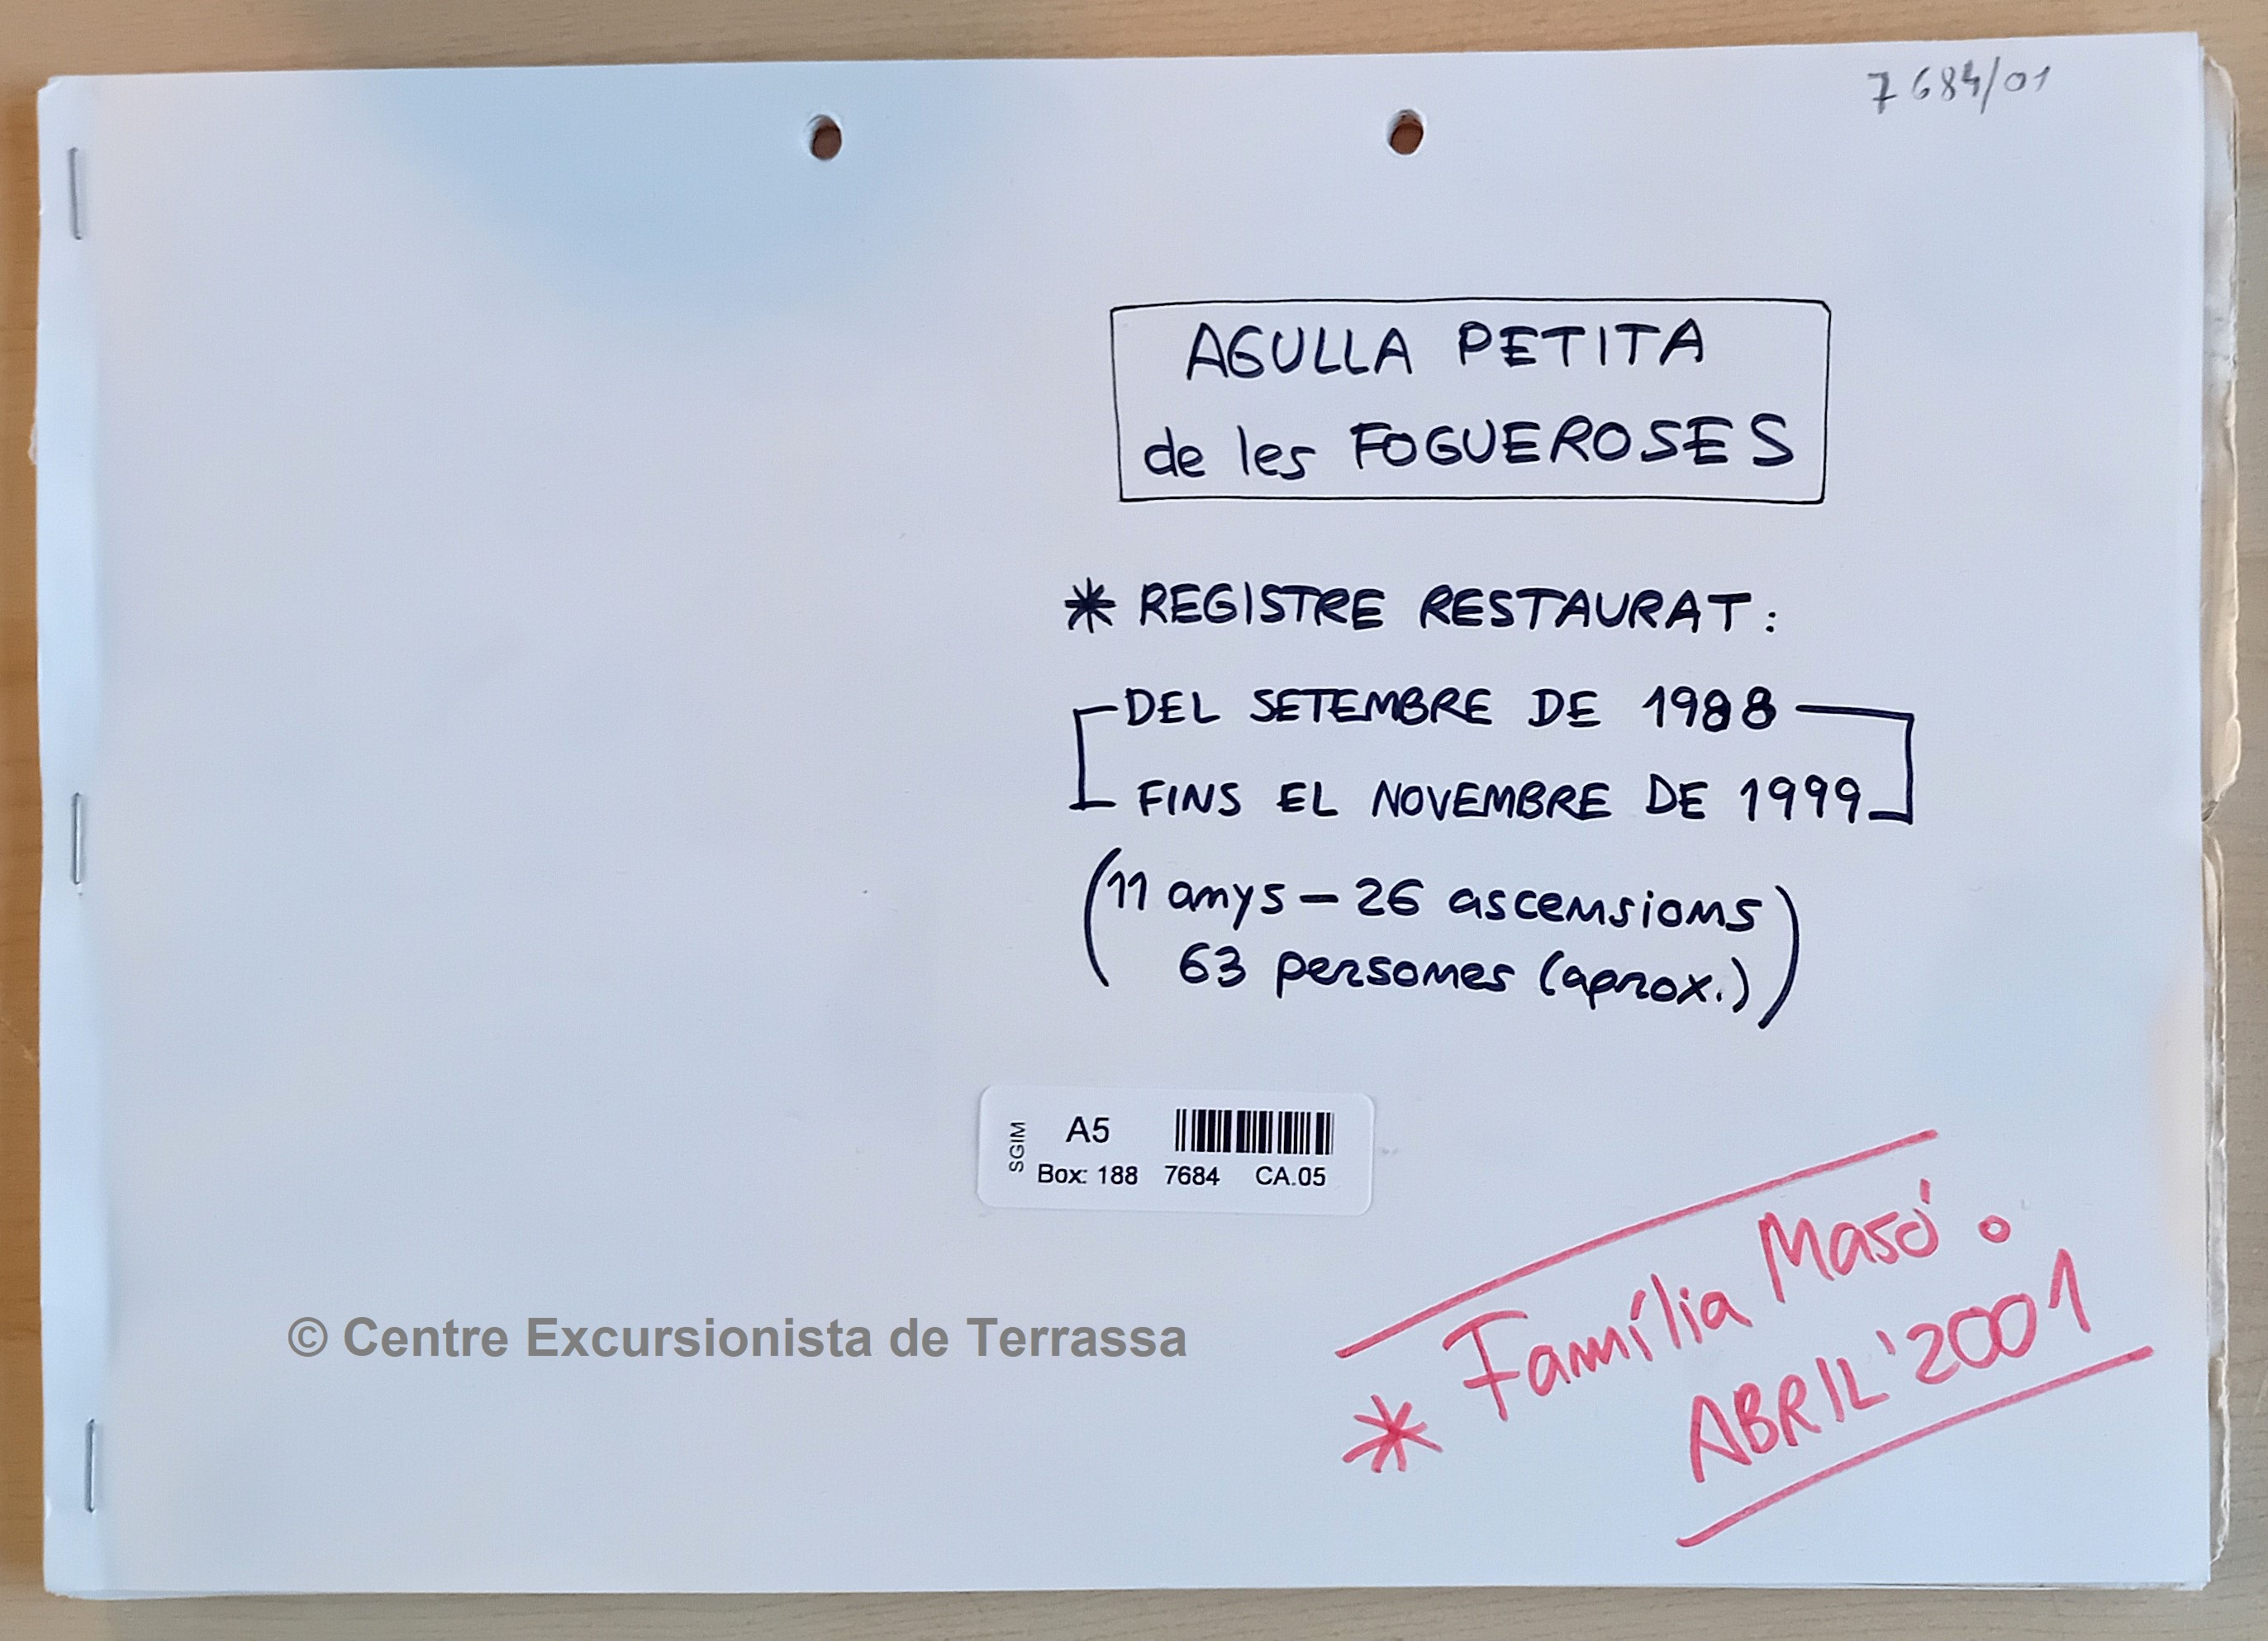 7684/01
AGULLA PETITA
de les FOGUEROSES
* REGISTRE RESTAURAT:
DEL SETEMBRE DE 1988
FINS EL NOVEMBRE DE 1999
(11 anys - 26 ascensions
63 persones (aprox.))
SGIM
A5
Box: 188 7684 CA.05
© Centre Excursionista de Terrassa
* Família Masó.
ABRIL'2001